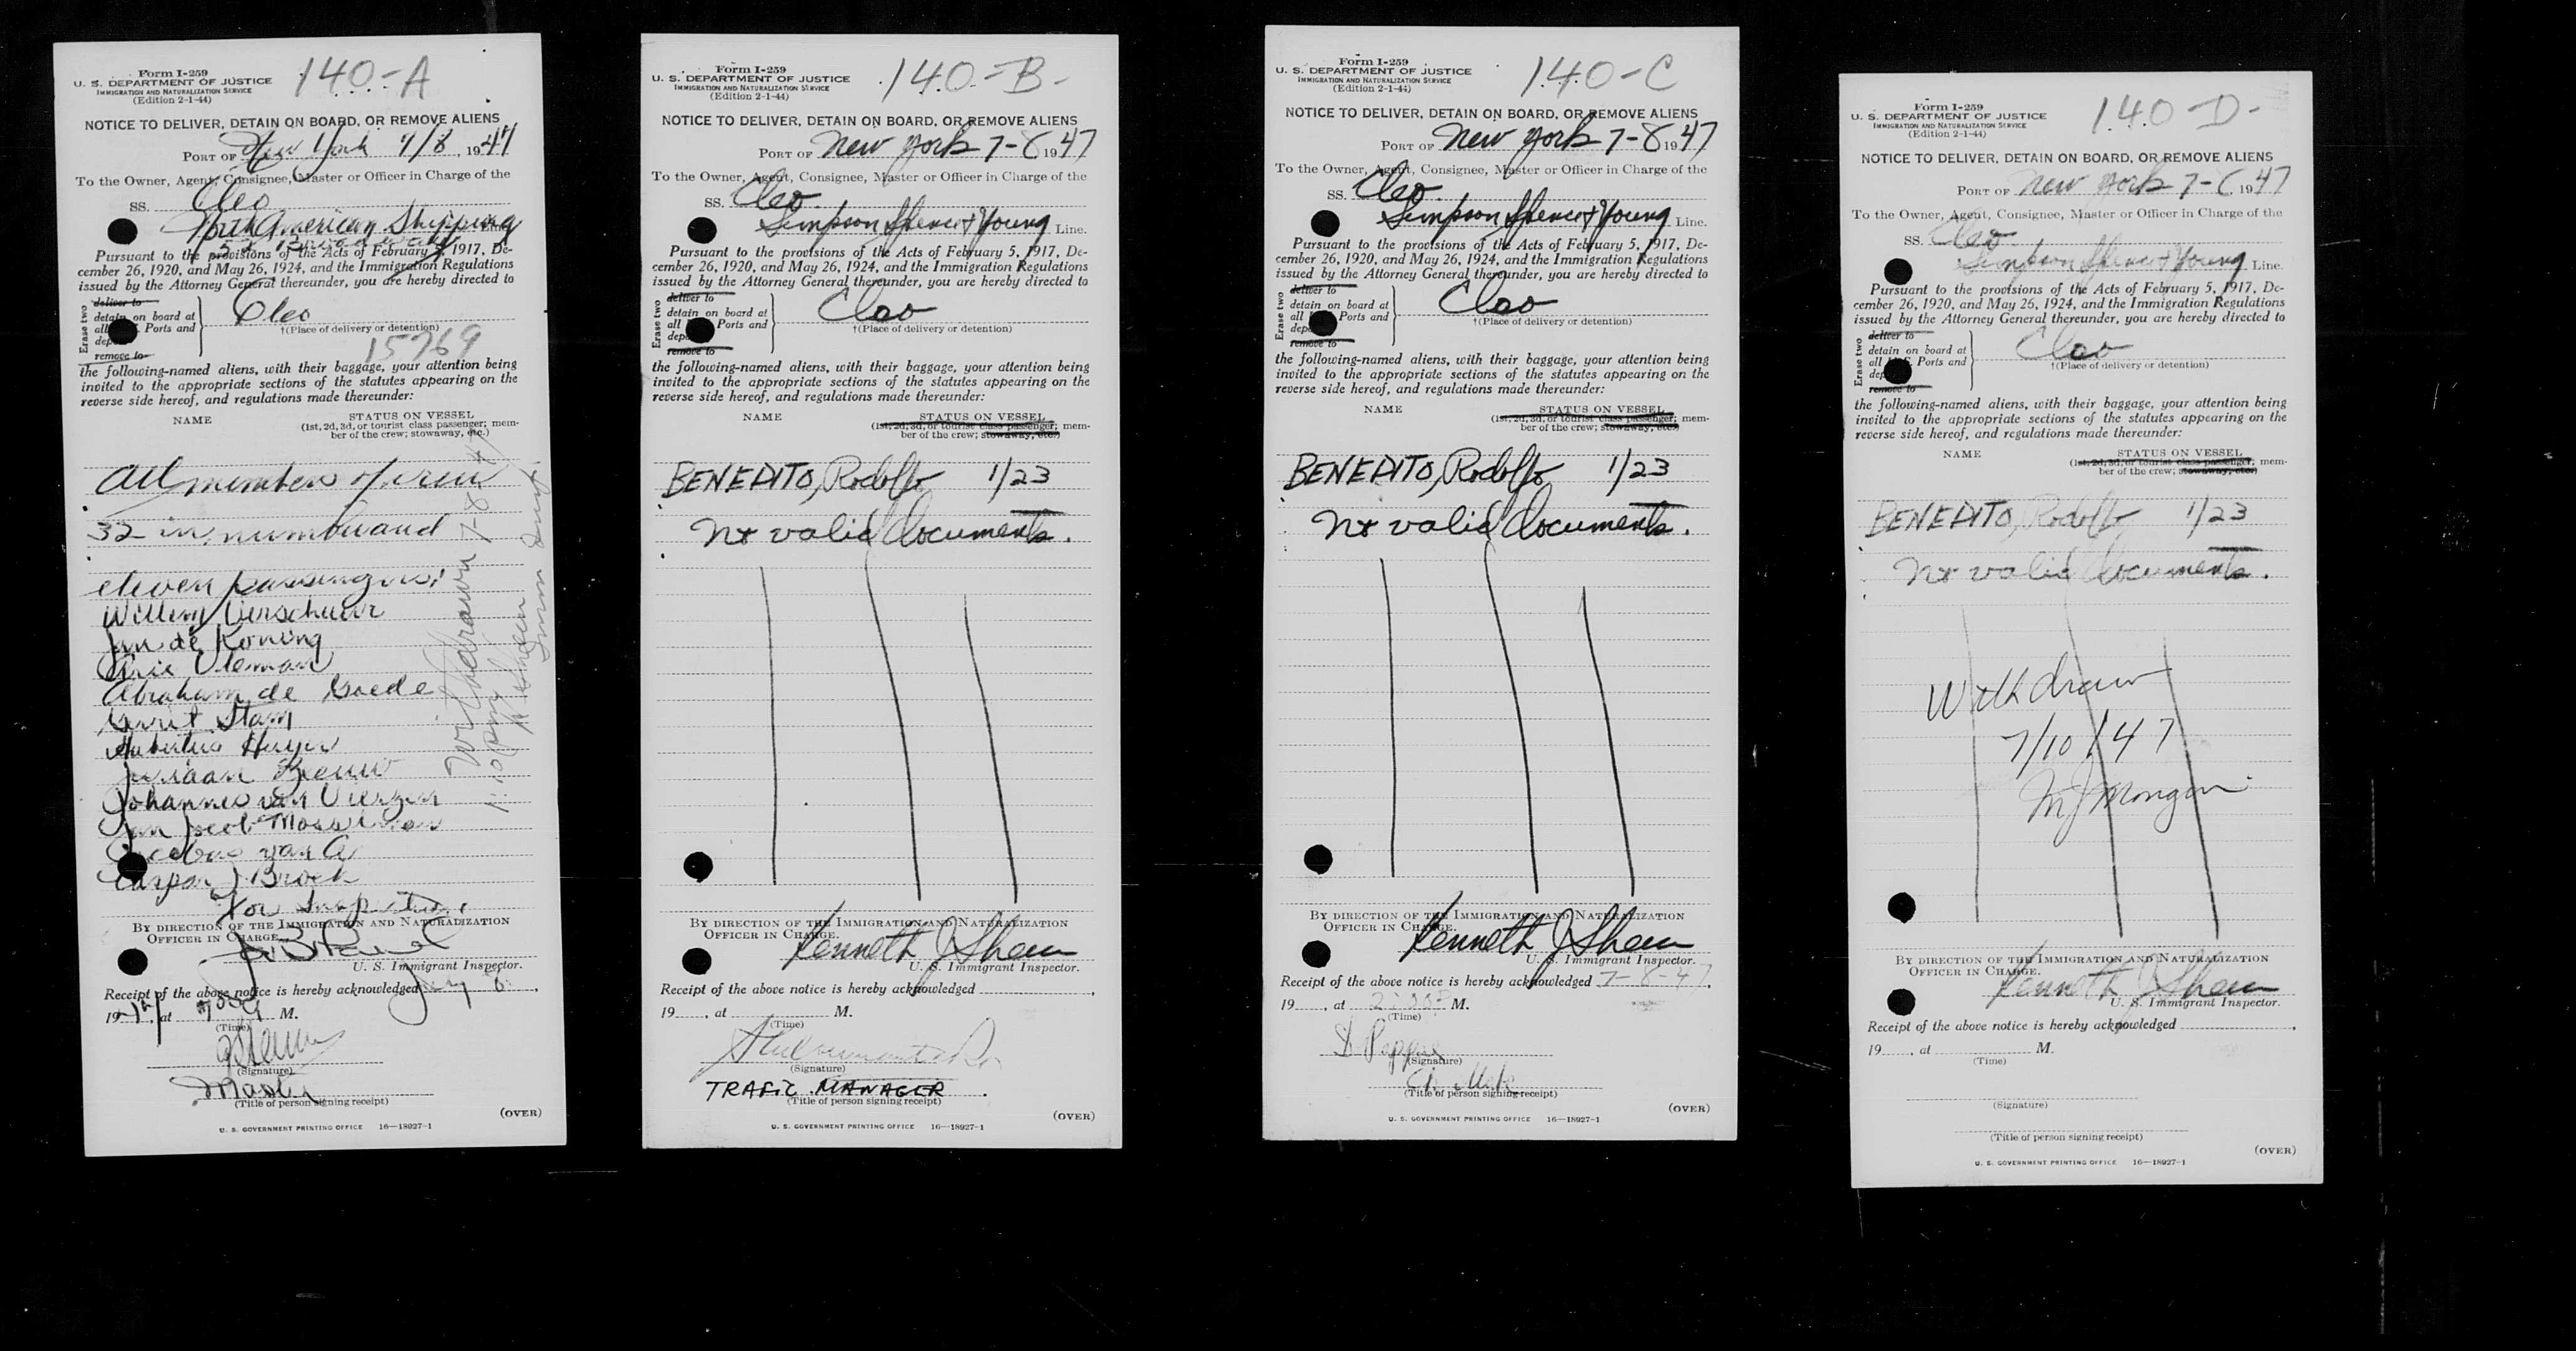 Form I-259
140-A
U. S. DEPARTMENT OF JUSTICE
IMMIGRATION AND NATURALIZATION SERVICE
(Edition 2-1-44)
NOTICE TO DELIVER, DETAIN ON BOARD, OR REMOVE ALIENS
PORT OF New York 7/8, 1947
To the Owner, Agent, Consignee, Master or Officer in Charge of the
SS. Cleo
North American Shipping
Pursuant to the provisions of the Acts of February 5, 1917, De-
cember 26, 1920, and May 26, 1924, and the Immigration Regulations
issued by the Attorney General thereunder, you are hereby directed to
Erase two
deliver to
detain on board at
all Ports and
remove to
Cleo
†(Place of delivery or detention)
15769
the following-named aliens, with their baggage, your attention being
invited to the appropriate sections of the statutes appearing on the
reverse side hereof, and regulations made thereunder:
NAME
STATUS ON VESSEL
(1st, 2d, 3d, or tourist class passenger; mem-
ber of the crew; stowaway, etc.)
All members of crew
32 in number and
eleven passengers:
Willem Verschuur
Jan de Koning
Arie Uleman
Abraham de Goede
Gerrit Stam
Hubertus
Johannes van
Jan Jacob
Jacobus van
Caspar J. Broek
For Inspection
Withdrawn 7-8-47
1:10 pm
BY DIRECTION OF THE IMMIGRATION AND NATURALIZATION
OFFICER IN CHARGE.
U. S. Immigrant Inspector.
Receipt of the above notice is hereby acknowledged July 8,
1947, at M.
(Time)
(Signature)
Master
(Title of person signing receipt)
(OVER)
U. S. GOVERNMENT PRINTING OFFICE 16—18927-1
Form I-259
140-B-
U. S. DEPARTMENT OF JUSTICE
IMMIGRATION AND NATURALIZATION SERVICE
(Edition 2-1-44)
NOTICE TO DELIVER, DETAIN ON BOARD, OR REMOVE ALIENS
PORT OF New York 7-8 1947
To the Owner, Agent, Consignee, Master or Officer in Charge of the
SS. Cleo
Simpson Spence & Young Line.
Pursuant to the provisions of the Acts of February 5, 1917, De-
cember 26, 1920, and May 26, 1924, and the Immigration Regulations
issued by the Attorney General thereunder, you are hereby directed to
Erase two
deliver to
detain on board at
all Ports and
remove to
Cleo
†(Place of delivery or detention)
the following-named aliens, with their baggage, your attention being
invited to the appropriate sections of the statutes appearing on the
reverse side hereof, and regulations made thereunder:
NAME
STATUS ON VESSEL
(1st, 2d, 3d, or tourist class passenger; mem-
ber of the crew; stowaway, etc.)
BENEDITO, Rodolfo 1/23
No valid documents.
BY DIRECTION OF THE IMMIGRATION AND NATURALIZATION
OFFICER IN CHARGE.
Kenneth J Shea
U. S. Immigrant Inspector.
Receipt of the above notice is hereby acknowledged
19 , at M.
(Time)
(Signature)
TRAFIC MANAGER
(Title of person signing receipt)
(OVER)
U. S. GOVERNMENT PRINTING OFFICE 16—18927-1
Form I-259
140-C
U. S. DEPARTMENT OF JUSTICE
IMMIGRATION AND NATURALIZATION SERVICE
(Edition 2-1-44)
NOTICE TO DELIVER, DETAIN ON BOARD, OR REMOVE ALIENS
PORT OF New York 7-8 1947
To the Owner, Agent, Consignee, Master or Officer in Charge of the
SS. Cleo
Simpson Spence & Young Line.
Pursuant to the provisions of the Acts of February 5, 1917, De-
cember 26, 1920, and May 26, 1924, and the Immigration Regulations
issued by the Attorney General thereunder, you are hereby directed to
Erase two
deliver to
detain on board at
all Ports and
remove to
Cleo
†(Place of delivery or detention)
the following-named aliens, with their baggage, your attention being
invited to the appropriate sections of the statutes appearing on the
reverse side hereof, and regulations made thereunder:
NAME
STATUS ON VESSEL
(1st, 2d, 3d, or tourist class passenger; mem-
ber of the crew; stowaway, etc.)
BENEDITO, Rodolfo 1/23
No valid documents.
BY DIRECTION OF THE IMMIGRATION AND NATURALIZATION
OFFICER IN CHARGE.
Kenneth J Shea
U. S. Immigrant Inspector.
Receipt of the above notice is hereby acknowledged 7-8-47,
19 , at M.
(Time)
(Signature)
Ch. Mate
(Title of person signing receipt)
(OVER)
U. S. GOVERNMENT PRINTING OFFICE 16—18927-1
Form I-259
140-D-
U. S. DEPARTMENT OF JUSTICE
IMMIGRATION AND NATURALIZATION SERVICE
(Edition 2-1-44)
NOTICE TO DELIVER, DETAIN ON BOARD, OR REMOVE ALIENS
PORT OF New York 7-8 1947
To the Owner, Agent, Consignee, Master or Officer in Charge of the
SS. Cleo
Simpson Spence & Young Line.
Pursuant to the provisions of the Acts of February 5, 1917, De-
cember 26, 1920, and May 26, 1924, and the Immigration Regulations
issued by the Attorney General thereunder, you are hereby directed to
Erase two
deliver to
detain on board at
all Ports and
remove to
Cleo
†(Place of delivery or detention)
the following-named aliens, with their baggage, your attention being
invited to the appropriate sections of the statutes appearing on the
reverse side hereof, and regulations made thereunder:
NAME
STATUS ON VESSEL
(1st, 2d, 3d, or tourist class passenger; mem-
ber of the crew; stowaway, etc.)
BENEDITO, Rodolfo 1/23
No valid documents.
Withdrawn
7/10/47
BY DIRECTION OF THE IMMIGRATION AND NATURALIZATION
OFFICER IN CHARGE.
Kenneth J Shea
U. S. Immigrant Inspector.
Receipt of the above notice is hereby acknowledged
19 , at M.
(Time)
(Signature)
(Title of person signing receipt)
(OVER)
U. S. GOVERNMENT PRINTING OFFICE 16—18927-1